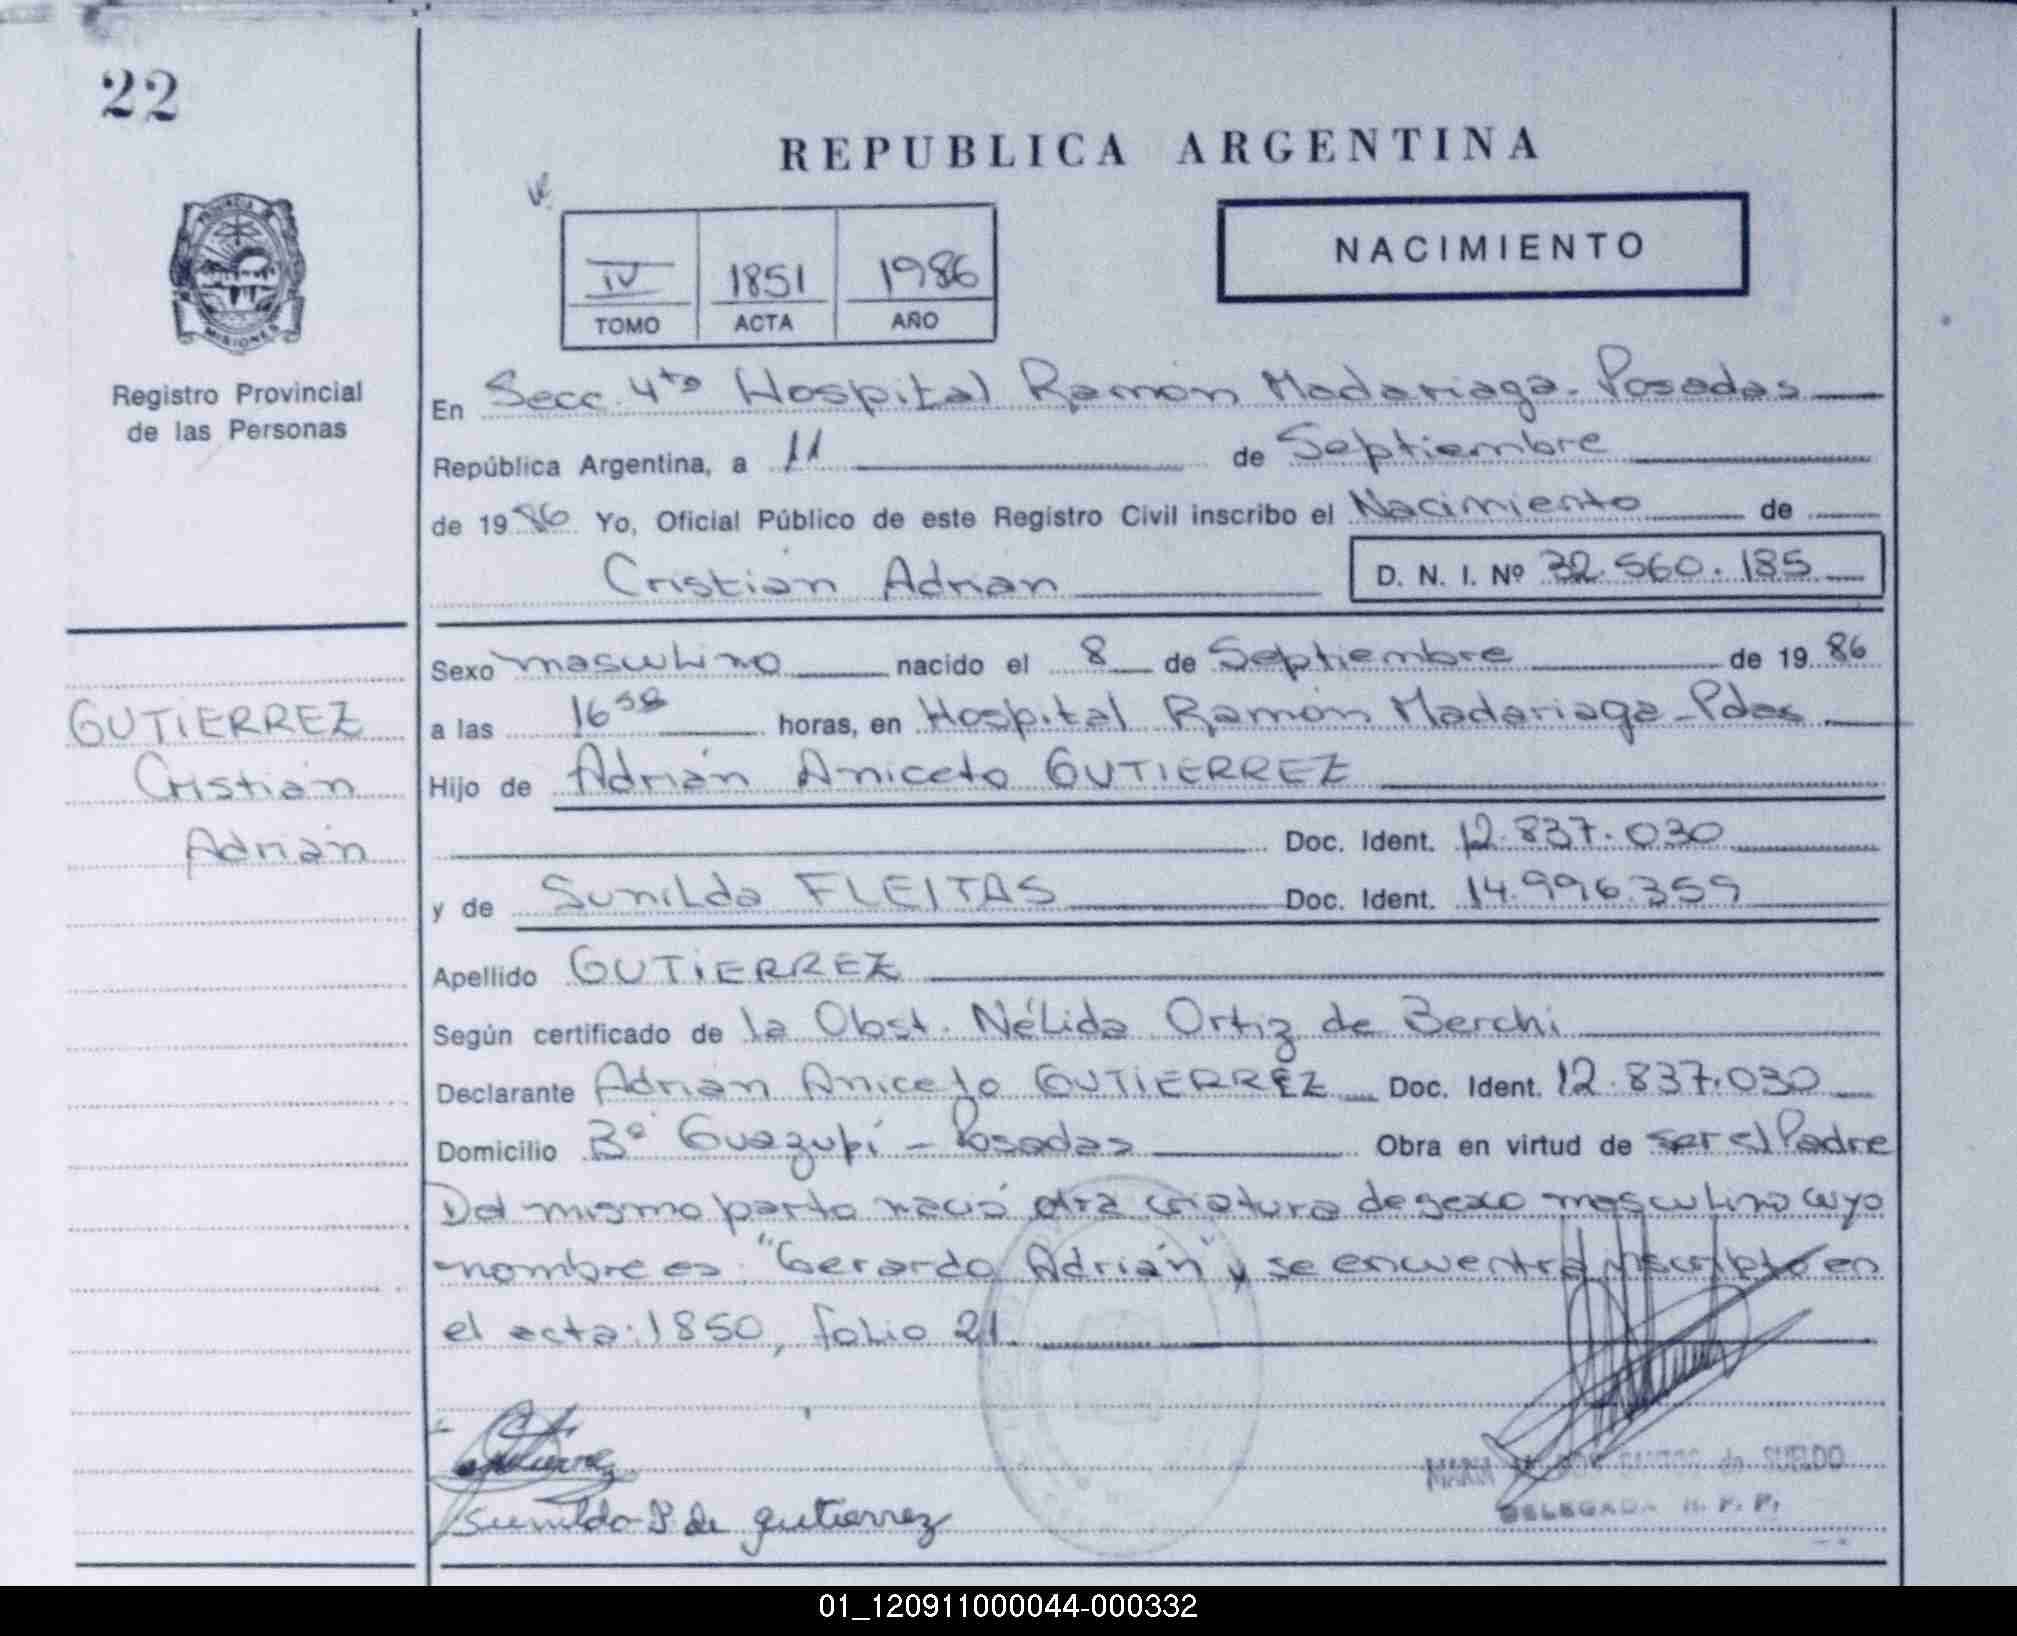 22
REPUBLICA ARGENTINA
NACIMIENTO
IV 1851 1986
TOMO ACTA AÑO
PROVINCIA DE
MISIONES
Registro Provincial
de las Personas
En Secc. 4ta Hospital Ramón Madariaga - Posadas
República Argentina, a 11 de Septiembre
de 1986 Yo, Oficial Público de este Registro Civil inscribo el Nacimiento de
Cristian Adrián D. N. I. Nº 32.560.185
Sexo masculino nacido el 8 de Septiembre de 1986
a las 16 38 horas, en Hospital Ramón Madariaga - Pdas
Hijo de Adrián Aniceto GUTIERREZ
Doc. Ident. 12.837.030
y de Sunilda FLEITAS Doc. Ident. 14.996.359
Apellido GUTIERREZ
Según certificado de la Obst. Nélida Ortiz de Berchi
Declarante Adrián Aniceto GUTIERREZ Doc. Ident. 12.837.030
Domicilio Bº Guazupí - Posadas Obra en virtud de ser el Padre
Del mismo parto nació otra criatura de sexo masculino cuyo
nombre es "Gerardo Adrián" y se encuentra inscripto en
el acta: 1850, folio 21.
GUTIERREZ
Cristian
Adrián
Gutierrez
Sunilda F de gutierrez
SANTOS de SUELDO
DELEGADA R. P. P.
01_120911000044-000332